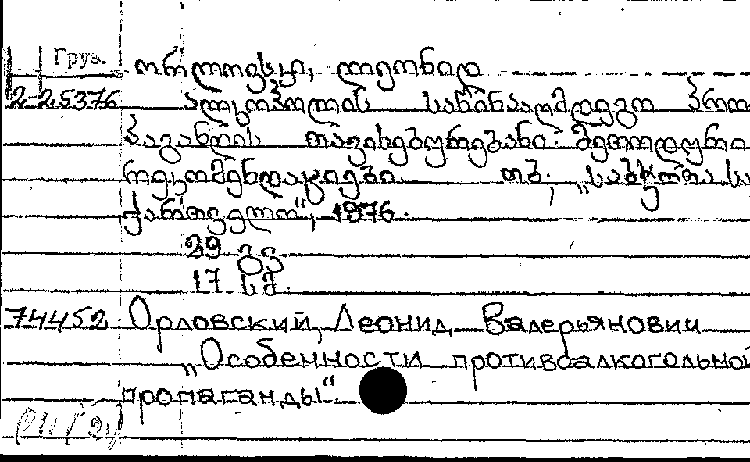 Груз.
ორლოვსკი, ლეონიდ
2-25376 ალკოჰოლის საწინააღმდეგო პროპა
თავისებურებანი: მეთოდური
რეკომენდაციები თბ., „საბჭოთა სა
ქართველო“, 1976.
29 გვ
17 სმ.
74452 Орловский, Леонид Валерьянович
„Особенности противоалкогольной
пропаганды“.